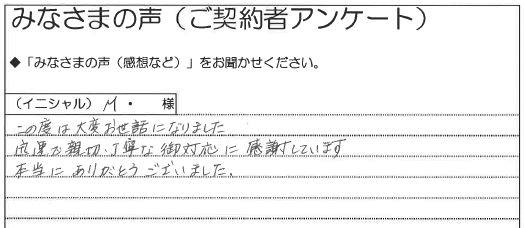 みなさまの声（ご契約者アンケート）
◆「みなさまの声（感想など）」をお聞かせください。
（イニシャル） M・ 様
この度は大変お世話になりました
迅速な親切、丁寧な御対応に感謝しています
本当にありがとうございました。